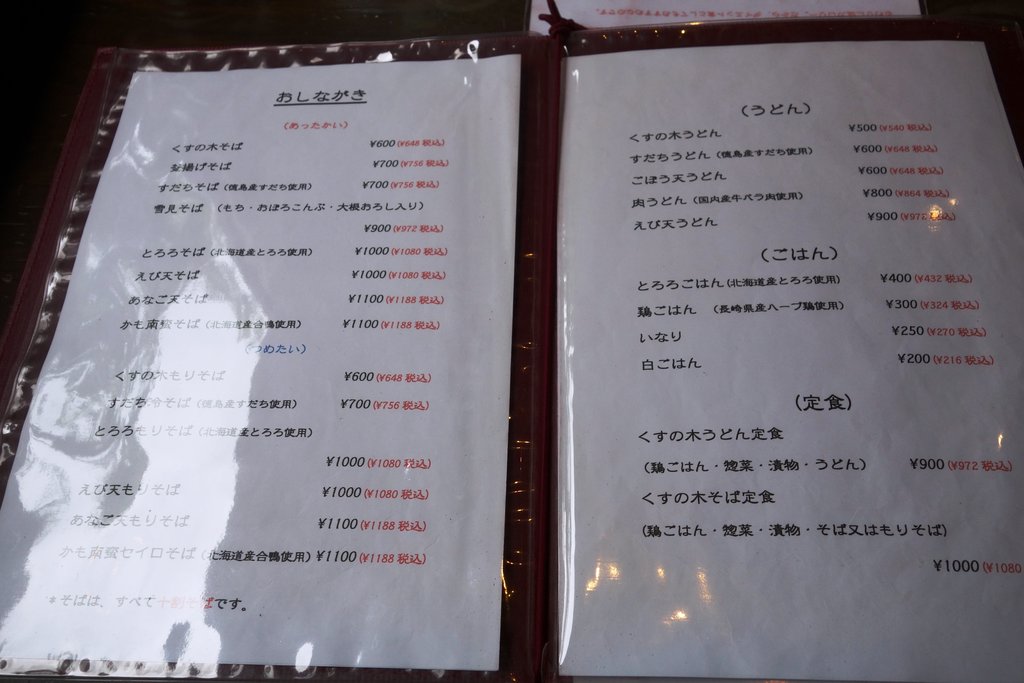 おしながき
（あったかい）
くすの木そば ¥600(¥648 税込)
釜揚げそば ¥700(¥756 税込)
すだちそば（徳島産すだち使用） ¥700(¥756 税込)
雪見そば （もち・おぼろこんぶ・大根おろし入り）
¥900(¥972 税込)
とろろそば（北海道産とろろ使用） ¥1000(¥1080 税込)
えび天そば ¥1000(¥1080 税込)
あなご天そば ¥1100(¥1188 税込)
かも南蛮そば（北海道産合鴨使用） ¥1100(¥1188 税込)
（つめたい）
くすの木もりそば ¥600(¥648 税込)
すだち冷そば（徳島産すだち使用） ¥700(¥756 税込)
とろろもりそば（北海道産とろろ使用）
¥1000(¥1080 税込)
えび天もりそば ¥1000(¥1080 税込)
あなご天もりそば ¥1100(¥1188 税込)
かも南蛮セイロそば（北海道産合鴨使用） ¥1100(¥1188 税込)
＊そばは、すべて十割そばです。
（うどん）
くすの木うどん ¥500(¥540 税込)
すだちうどん（徳島産すだち使用） ¥600(¥648 税込)
ごぼう天うどん ¥600(¥648 税込)
肉うどん（国内産牛バラ肉使用） ¥800(¥864 税込)
えび天うどん ¥900(¥972 税込)
（ごはん）
とろろごはん（北海道産とろろ使用） ¥400(¥432 税込)
鶏ごはん （長崎県産ハーブ鶏使用） ¥300(¥324 税込)
いなり ¥250(¥270 税込)
白ごはん ¥200(¥216 税込)
（定食）
くすの木うどん定食
（鶏ごはん・惣菜・漬物・うどん） ¥900(¥972 税込)
くすの木そば定食
（鶏ごはん・惣菜・漬物・そば又はもりそば）
¥1000(¥1080